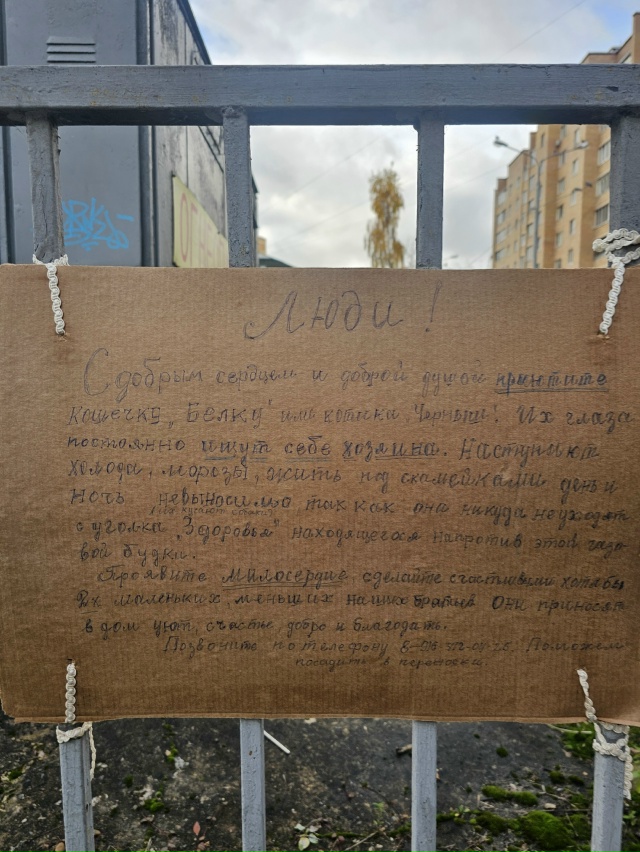 ОГНЕ
Люди!
С добрым сердцем и доброй душой приютите
кошечку „Белку" или котика Черныш! Их глаза
постоянно ищут себе хозяина. Наступают
холода, морозы, жить под скамейками день и
ночь невыносимо так как они никуда не уходят
с уголка „Здоровья" находящегося напротив этой газо-
вой будки.
Проявите милосердие, сделайте счастливыми хотя бы
2х маленьких, меньших наших братьев. Они приносят
в дом уют, счастье, добро и благодать.
Позвоните по телефону Поможем
посадить в переноски